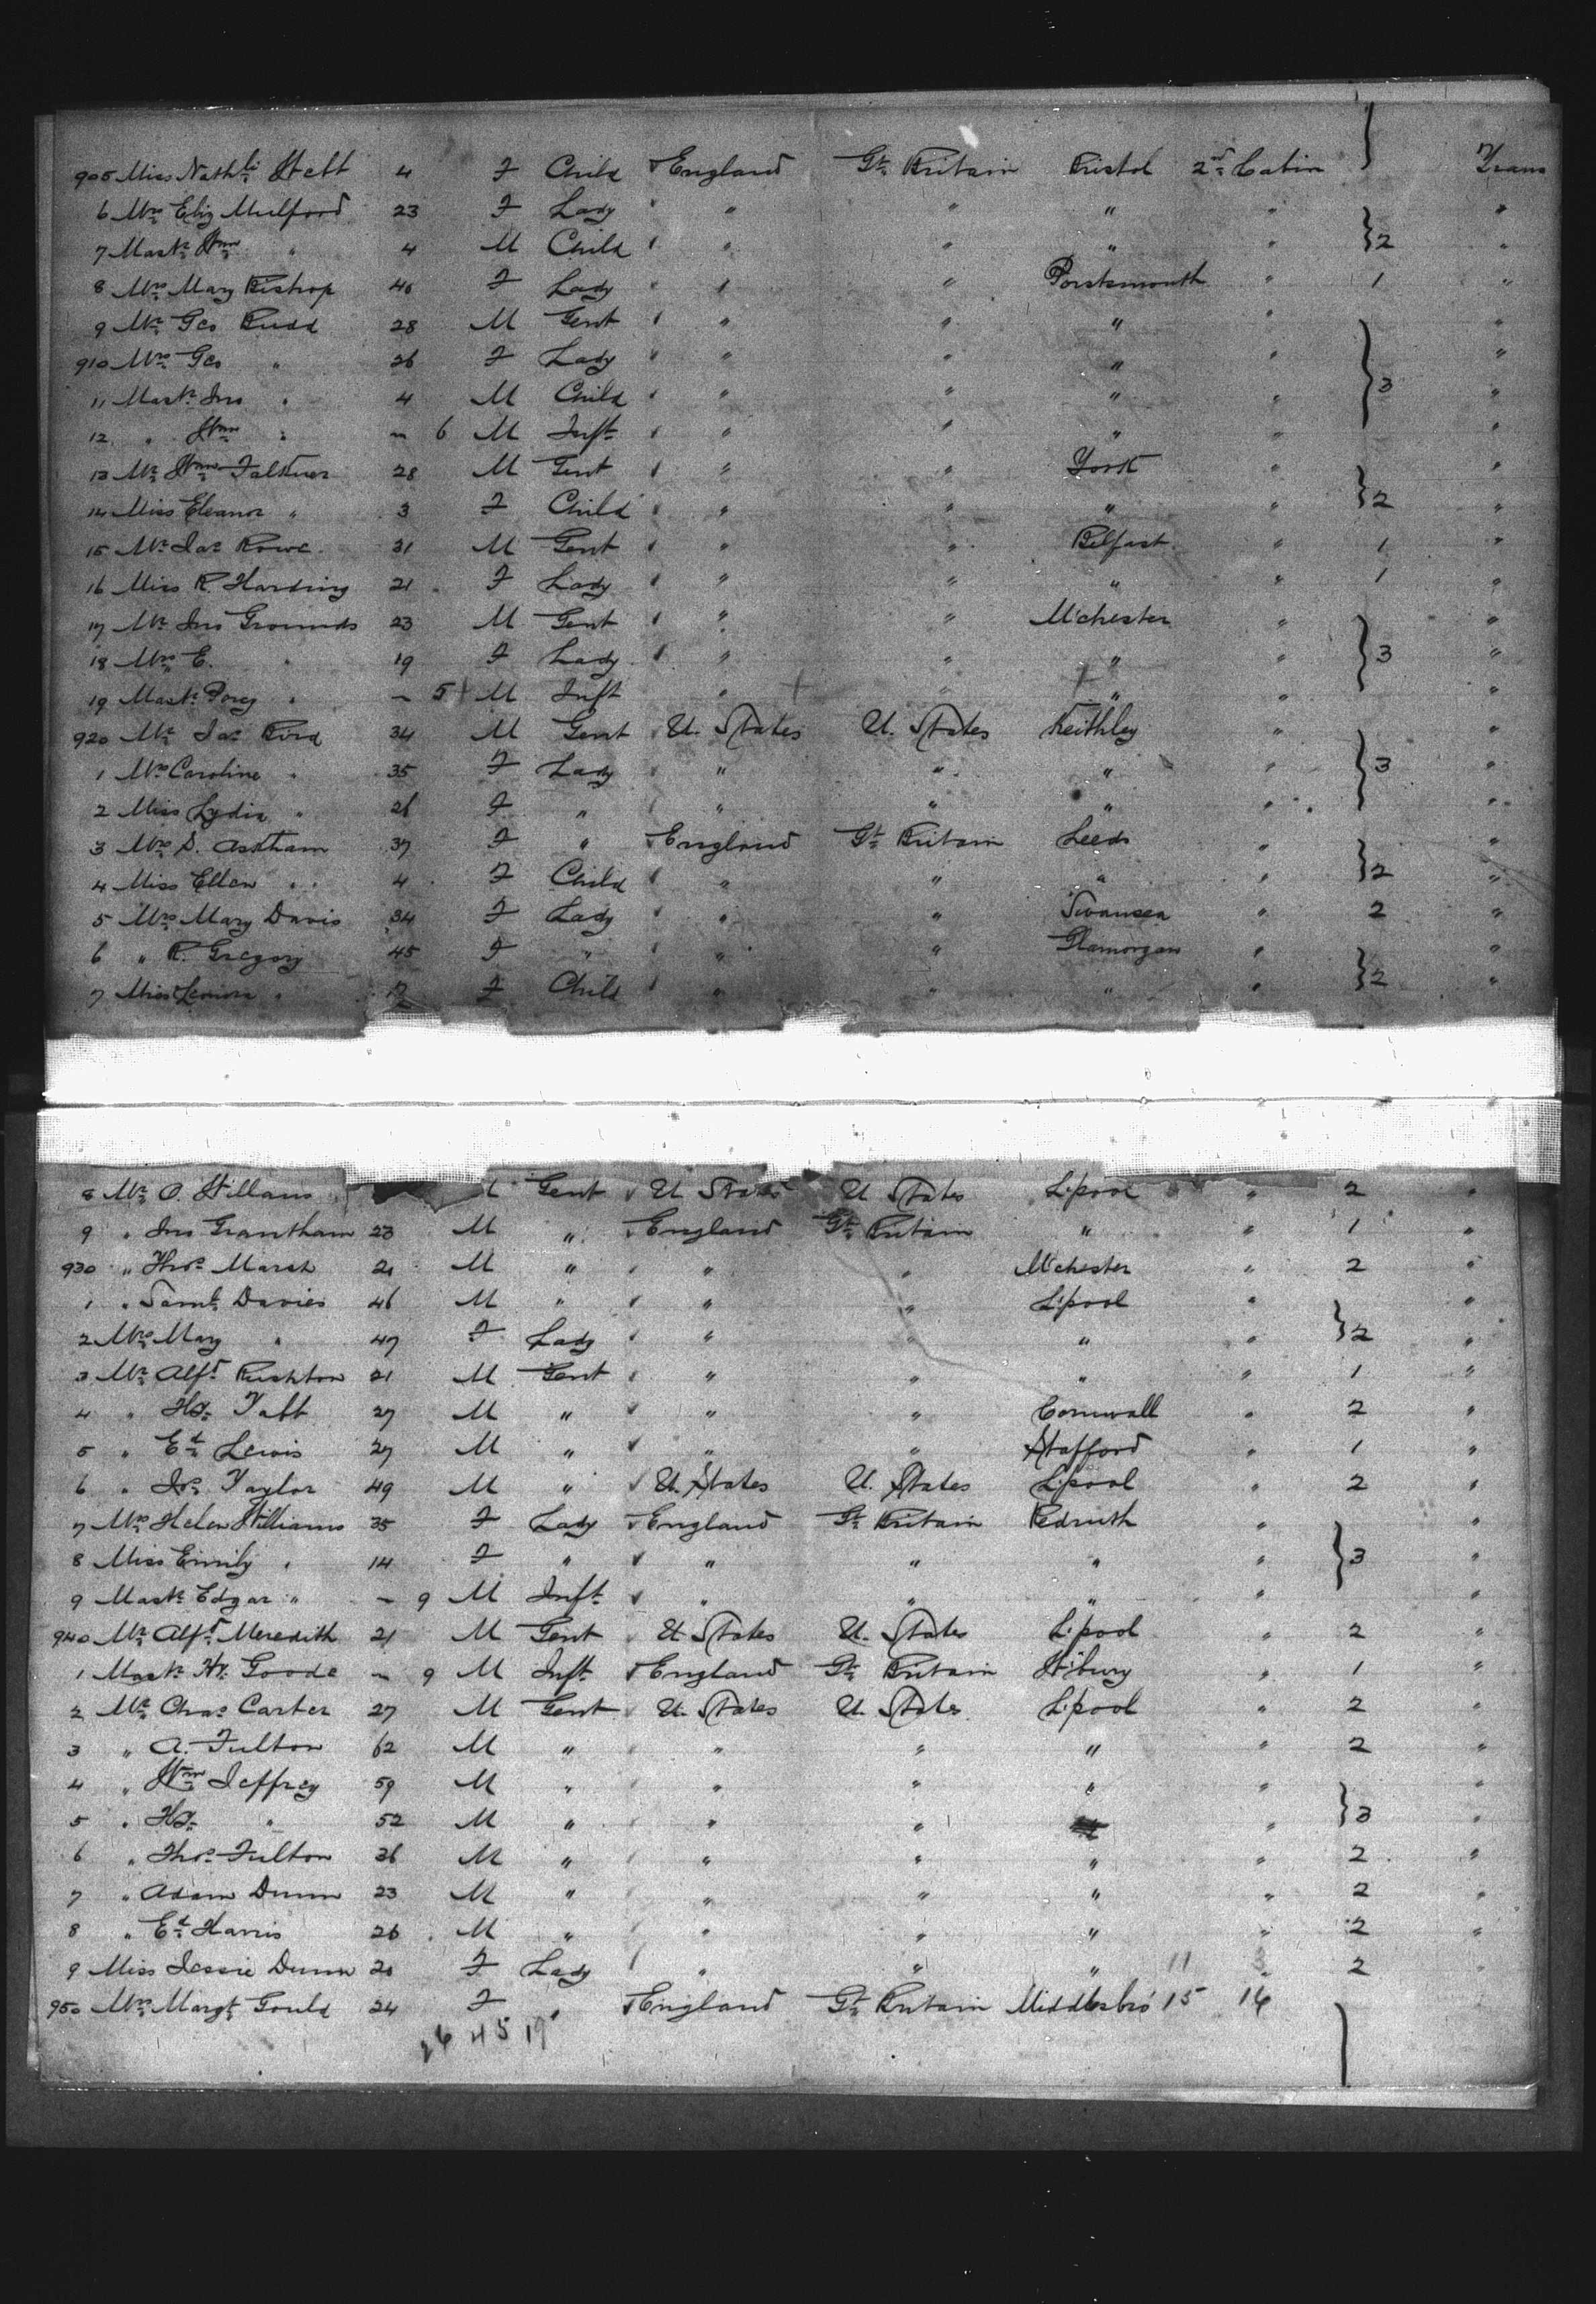 905 Miss Nath.li Webb 4 F Child England Gt. Britain Bristol 2nd Cabin Trans
6 Mrs Eliz Mulford 23 F Lady " " " " "
7 Mastr Wm " 4 M Child " " " " } 2 "
8 Mrs Mary Bishop 46 F Lady " " Portsmouth " 1 "
9 Mr Geo Rudd 28 M Gent " " " " "
910 Mrs Geo " 26 F Lady " " " " "
11 Mastr Jno " 4 M Child " " " " } 3 "
12 " Wm " – 6 M Inft " " " " "
13 Mr Wm Falkner 28 M Gent " " York " "
14 Miss Eleanor " 3 F Child " " " " } 2 "
15 Mr Jas Rowe 31 M Gent " " Belfast " 1 "
16 Miss R. Harding 21 F Lady " " " " 1 "
17 Mr Jno Grounds 23 M Gent " " M'chester " "
18 Mrs E. " 19 F Lady " " " " } 3 "
19 Mastr Percy " – 5 + M Inft " + " + " " "
920 Mr Jas Bird 34 M Gent U. States U. States Keithley " "
1 Mrs Caroline " 35 F Lady " " " " } 3 "
2 Miss Lydia " 26 F " " " " " "
3 Mrs S. Askham 37 F " England Gt. Britain Leeds " "
4 Miss Ellen " 4 F Child " " " " } 2 "
5 Mrs Mary Davis 34 F Lady " " Swansea " 2 "
6 " R. Gregory 45 F " " " Glamorgan " "
7 Miss Lenora " F Child " " " " } 2 "
8 Mr O. Gent U States U States L'pool " 2 "
9 " Jno Grantham 23 M " England Gt. Britain " " 1 "
930 " Thos. Marsh 21 M " " " M'chester " 2 "
1 " Saml. Davies 46 M " " " L'pool " "
2 Mrs Mary " 47 F Lady " " " " } 2 "
3 Mr Alfd Rushton 21 M Gent " " " " 1 "
4 " Hy. Tabb 27 M " " " Cornwall " 2 "
5 " Ed. Lewis 27 M " " " Stafford " 1 "
6 " Jos. Taylor 49 M " U. States U. States L'pool " 2 "
7 Mrs Helen Williams 35 F Lady England Gt. Britain Redruth " "
8 Miss Emily " 14 F " " " " " } 3 "
9 Mastr Edgar " – 9 M Inft " " " " "
940 Mr Alfd. Meredith 21 M Gent U. States U. States L'pool " 2 "
1 Mastr Hy. Goode – 9 M Inft England Gt. Britain W'bury " 1 "
2 Mr Chas Carter 27 M Gent U. States U. States L'pool " 2 "
3 " A. Fulton 62 M " " " " " 2 "
4 " Wm Jeffrey 59 M " " " " " "
5 " Hy. " 52 M " " " " } 3 "
6 " Thos. Fulton 36 M " " " " " 2 "
7 " Adam Dunn 23 M " " " " " 2 "
8 " Ed. Harris 26 M " " " " " 2 "
9 Miss Jessie Dunn 20 F Lady " " " 11 3 2
950 Mrs Margt. Gould 24 F " England Gt. Britain Middlesbro' 15 16
26 45 19